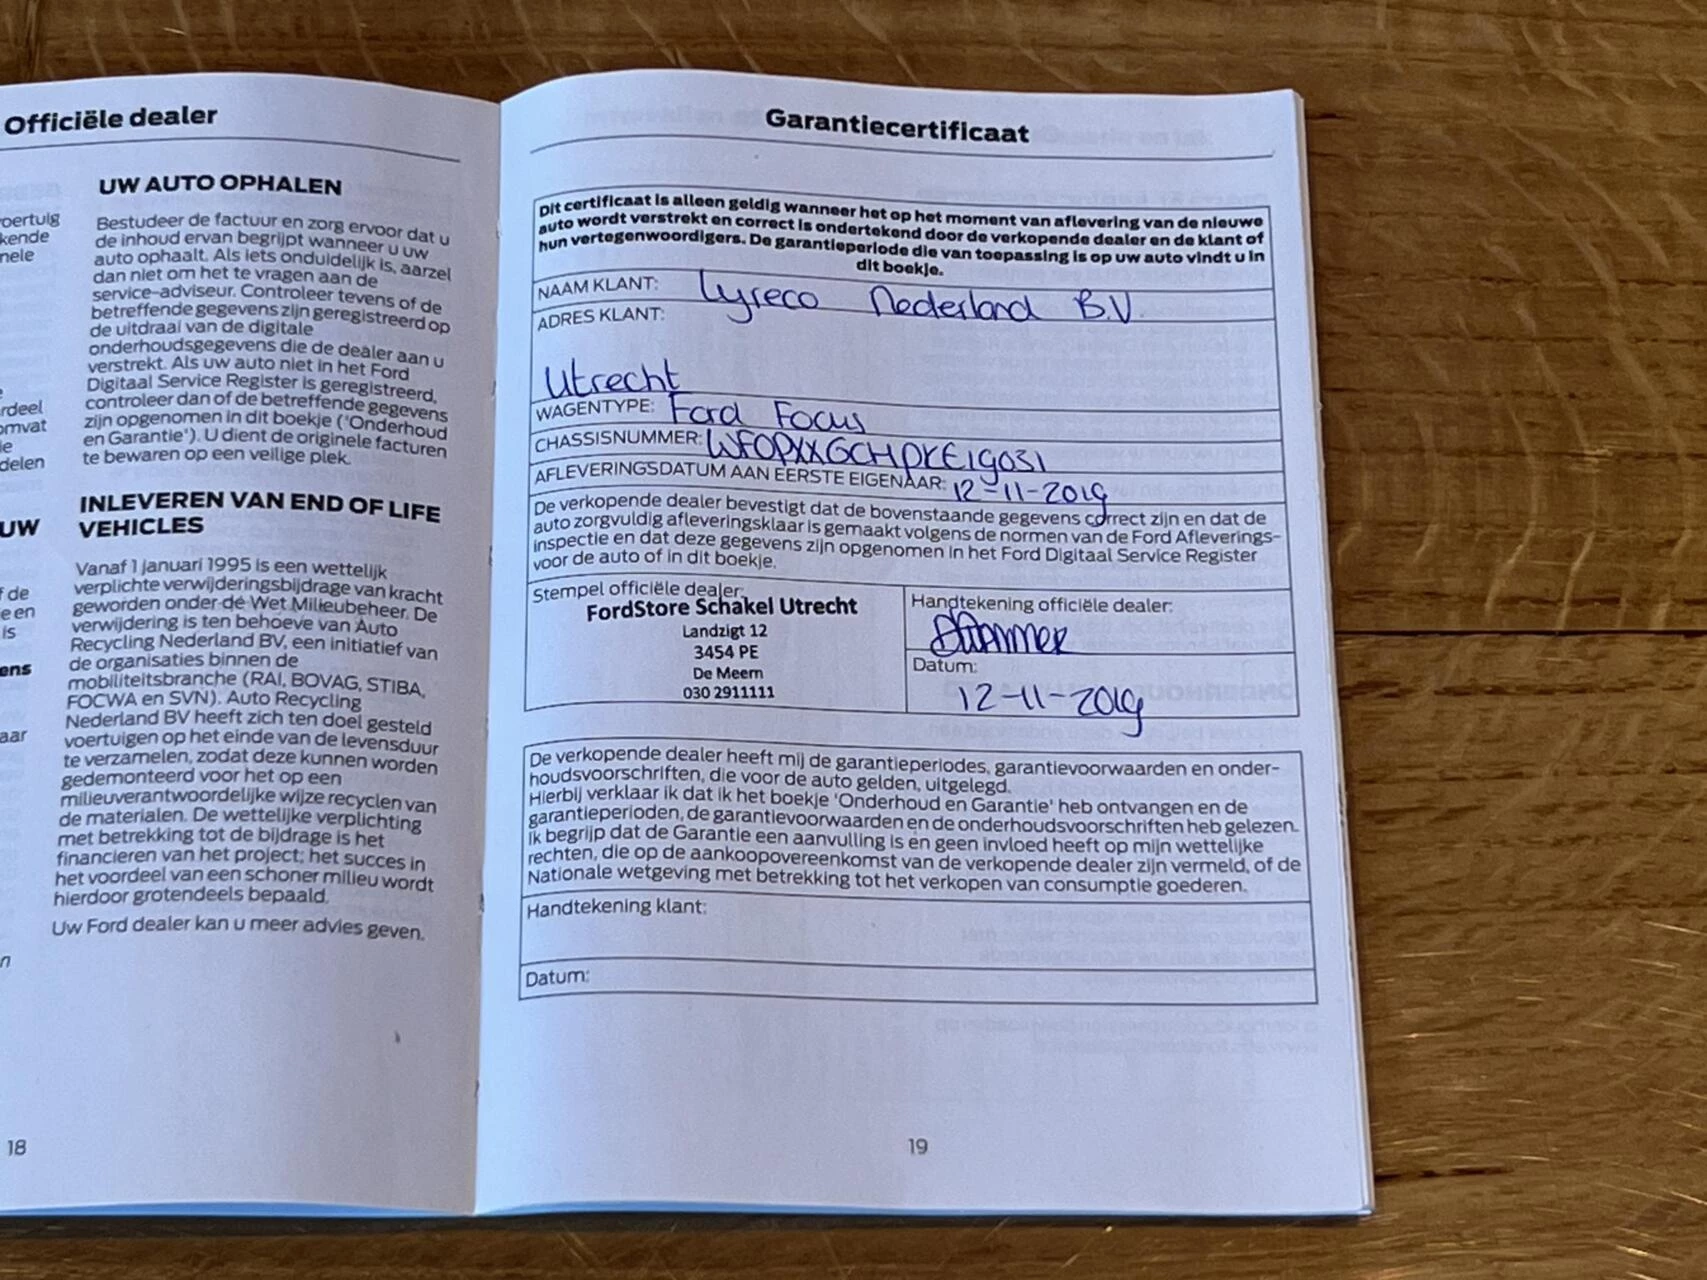 Officiële dealer
UW AUTO OPHALEN
Bestudeer de factuur en zorg ervoor dat u
de inhoud ervan begrijpt wanneer u uw
auto ophaalt. Als iets onduidelijk is, aarzel
dan niet om het te vragen aan de
service-adviseur. Controleer tevens of de
betreffende gegevens zijn geregistreerd op
de uitdraai van de digitale
onderhoudsgegevens die de dealer aan u
verstrekt. Als uw auto niet in het Ford
Digitaal Service Register is geregistreerd,
controleer dan of de betreffende gegevens
zijn opgenomen in dit boekje ('Onderhoud
en Garantie'). U dient de originele facturen
te bewaren op een veilige plek.
INLEVEREN VAN END OF LIFE
VEHICLES
Vanaf 1 januari 1995 is een wettelijk
verplichte verwijderingsbijdrage van kracht
geworden onder de Wet Milieubeheer. De
verwijdering is ten behoeve van Auto
Recycling Nederland BV, een initiatief van
de organisaties binnen de
mobiliteitsbranche (RAI, BOVAG, STIBA,
FOCWA en SVN). Auto Recycling
Nederland BV heeft zich ten doel gesteld
voertuigen op het einde van de levensduur
te verzamelen, zodat deze kunnen worden
gedemonteerd voor het op een
milieuverantwoordelijke wijze recyclen van
de materialen. De wettelijke verplichting
met betrekking tot de bijdrage is het
financieren van het project; het succes in
het voordeel van een schoner milieu wordt
hierdoor grotendeels bepaald.
Uw Ford dealer kan u meer advies geven.
18
Garantiecertificaat
Dit certificaat is alleen geldig wanneer het op het moment van aflevering van de nieuwe
auto wordt verstrekt en correct is ondertekend door de verkopende dealer en de klant of
hun vertegenwoordigers. De garantieperiode die van toepassing is op uw auto vindt u in
dit boekje.
NAAM KLANT: Lyreco Nederland B.V.
ADRES KLANT:
Utrecht
WAGENTYPE: Ford Focus
CHASSISNUMMER: WF0PXXGCHPKE19031
AFLEVERINGSDATUM AAN EERSTE EIGENAAR: 12-11-2019
De verkopende dealer bevestigt dat de bovenstaande gegevens correct zijn en dat de
auto zorgvuldig afleveringsklaar is gemaakt volgens de normen van de Ford Afleverings-
inspectie en dat deze gegevens zijn opgenomen in het Ford Digitaal Service Register
voor de auto of in dit boekje.
Stempel officiële dealer:
FordStore Schakel Utrecht
Landzigt 12
3454 PE
De Meern
030 2911111
Handtekening officiële dealer:
Datum:
12-11-2019
De verkopende dealer heeft mij de garantieperiodes, garantievoorwaarden en onder-
houdsvoorschriften, die voor de auto gelden, uitgelegd.
Hierbij verklaar ik dat ik het boekje 'Onderhoud en Garantie' heb ontvangen en de
garantieperioden, de garantievoorwaarden en de onderhoudsvoorschriften heb gelezen.
Ik begrijp dat de Garantie een aanvulling is en geen invloed heeft op mijn wettelijke
rechten, die op de aankoopovereenkomst van de verkopende dealer zijn vermeld, of de
Nationale wetgeving met betrekking tot het verkopen van consumptie goederen.
Handtekening klant:
Datum:
19